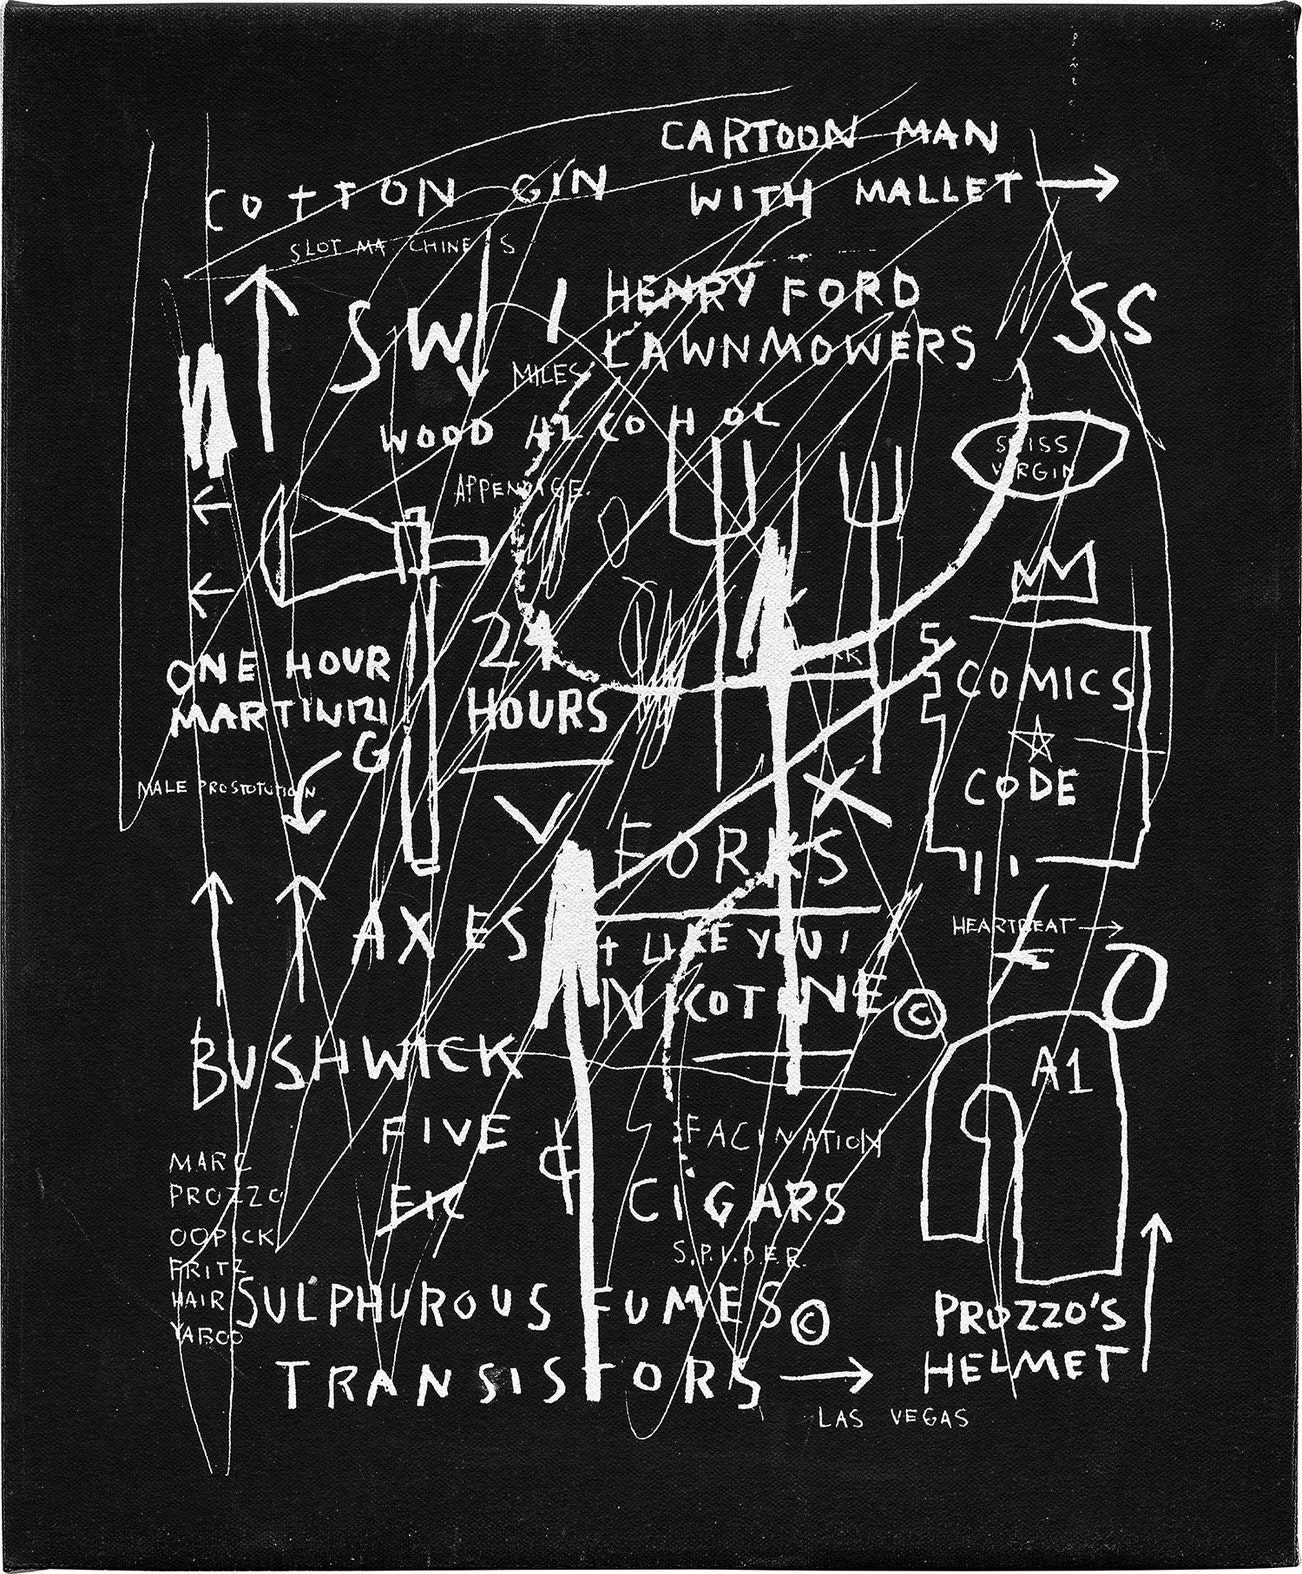 CARTOON MAN
WITH MALLET →
COTTON GIN
SLOT MACHINES
SWISS
HENRY FORD
LAWNMOWERS
MILES
WOOD ALCOHOL
SWISS
VIRGIN
APPENDAGE.
ONE HOUR
MARTINIZI
G
24
HOURS
COMICS
CODE
MALE PROSTOTUTION
X
FORKS
AXES
+ LIKE YOU!
NICOTINE ©
HEARTBEAT →
BUSHWICK
A1
FIVE ¢
FACINATION
ETC
CIGARS
S.P.I.D.E.R.
MARC
PROZZO
OOPICK
FRITZ
HAIR
YABOO
SULPHUROUS FUMES ©
TRANSISTORS →
LAS VEGAS
PROZZO'S
HELMET